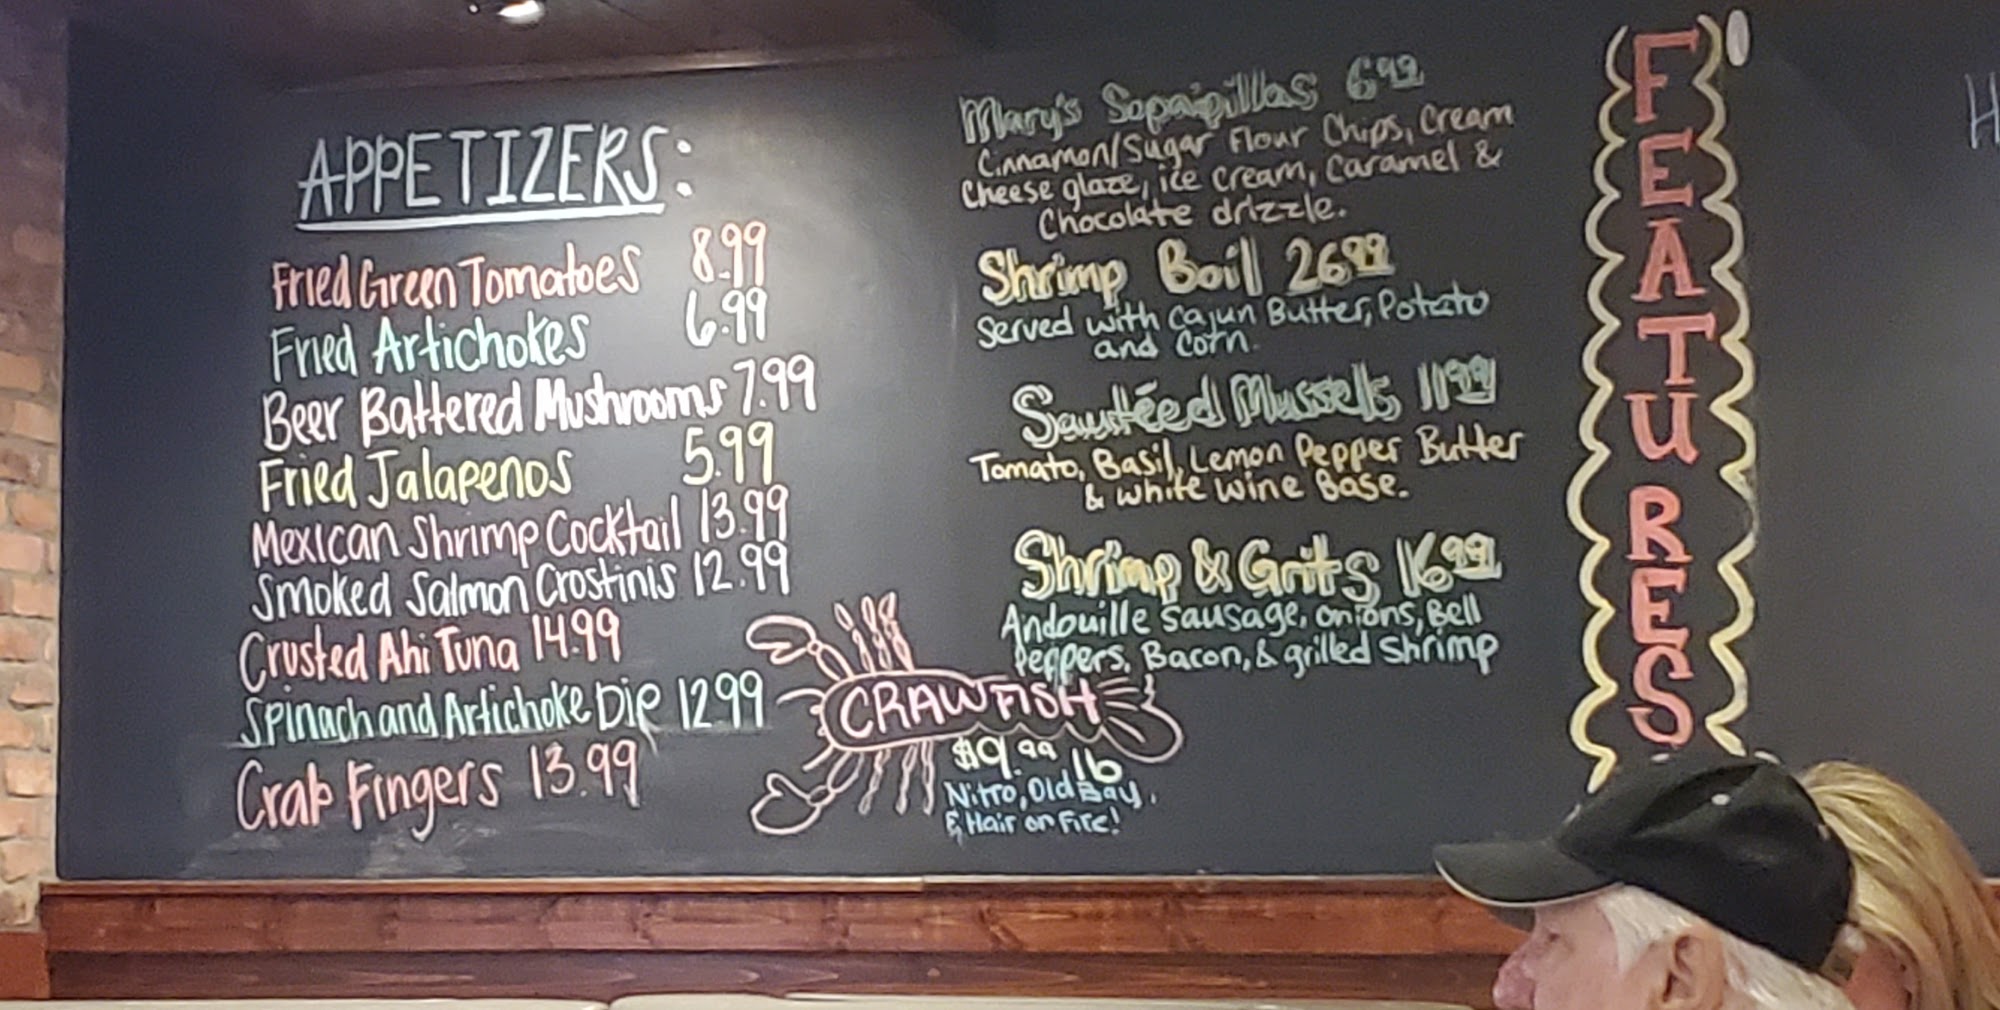 APPETIZERS:
Fried Green Tomatoes 8.99
Fried Artichokes 6.99
Beer Battered Mushrooms 7.99
Fried Jalapenos 5.99
Mexican Shrimp Cocktail 13.99
Smoked Salmon Crostinis 12.99
Crusted Ahi Tuna 14.99
Spinach and Artichoke Dip 12.99
Crab Fingers 13.99
Mary's Sopaipillas 6.99
Cinnamon/Sugar Flour Chips, Cream
Cheese glaze, ice cream, Caramel &
Chocolate drizzle.
Shrimp Boil 26.99
Served with Cajun Butter, Potato
and Corn.
Sautéed Mussels 11.99
Tomato, Basil, Lemon Pepper Butter
& white wine Base.
Shrimp & Grits 16.99
Andouille sausage, onions, Bell
Peppers, Bacon, & grilled Shrimp
CRAWFISH
$9.99 lb
Nitro, Old Bay,
& Hair on Fire!
FEATURES
H